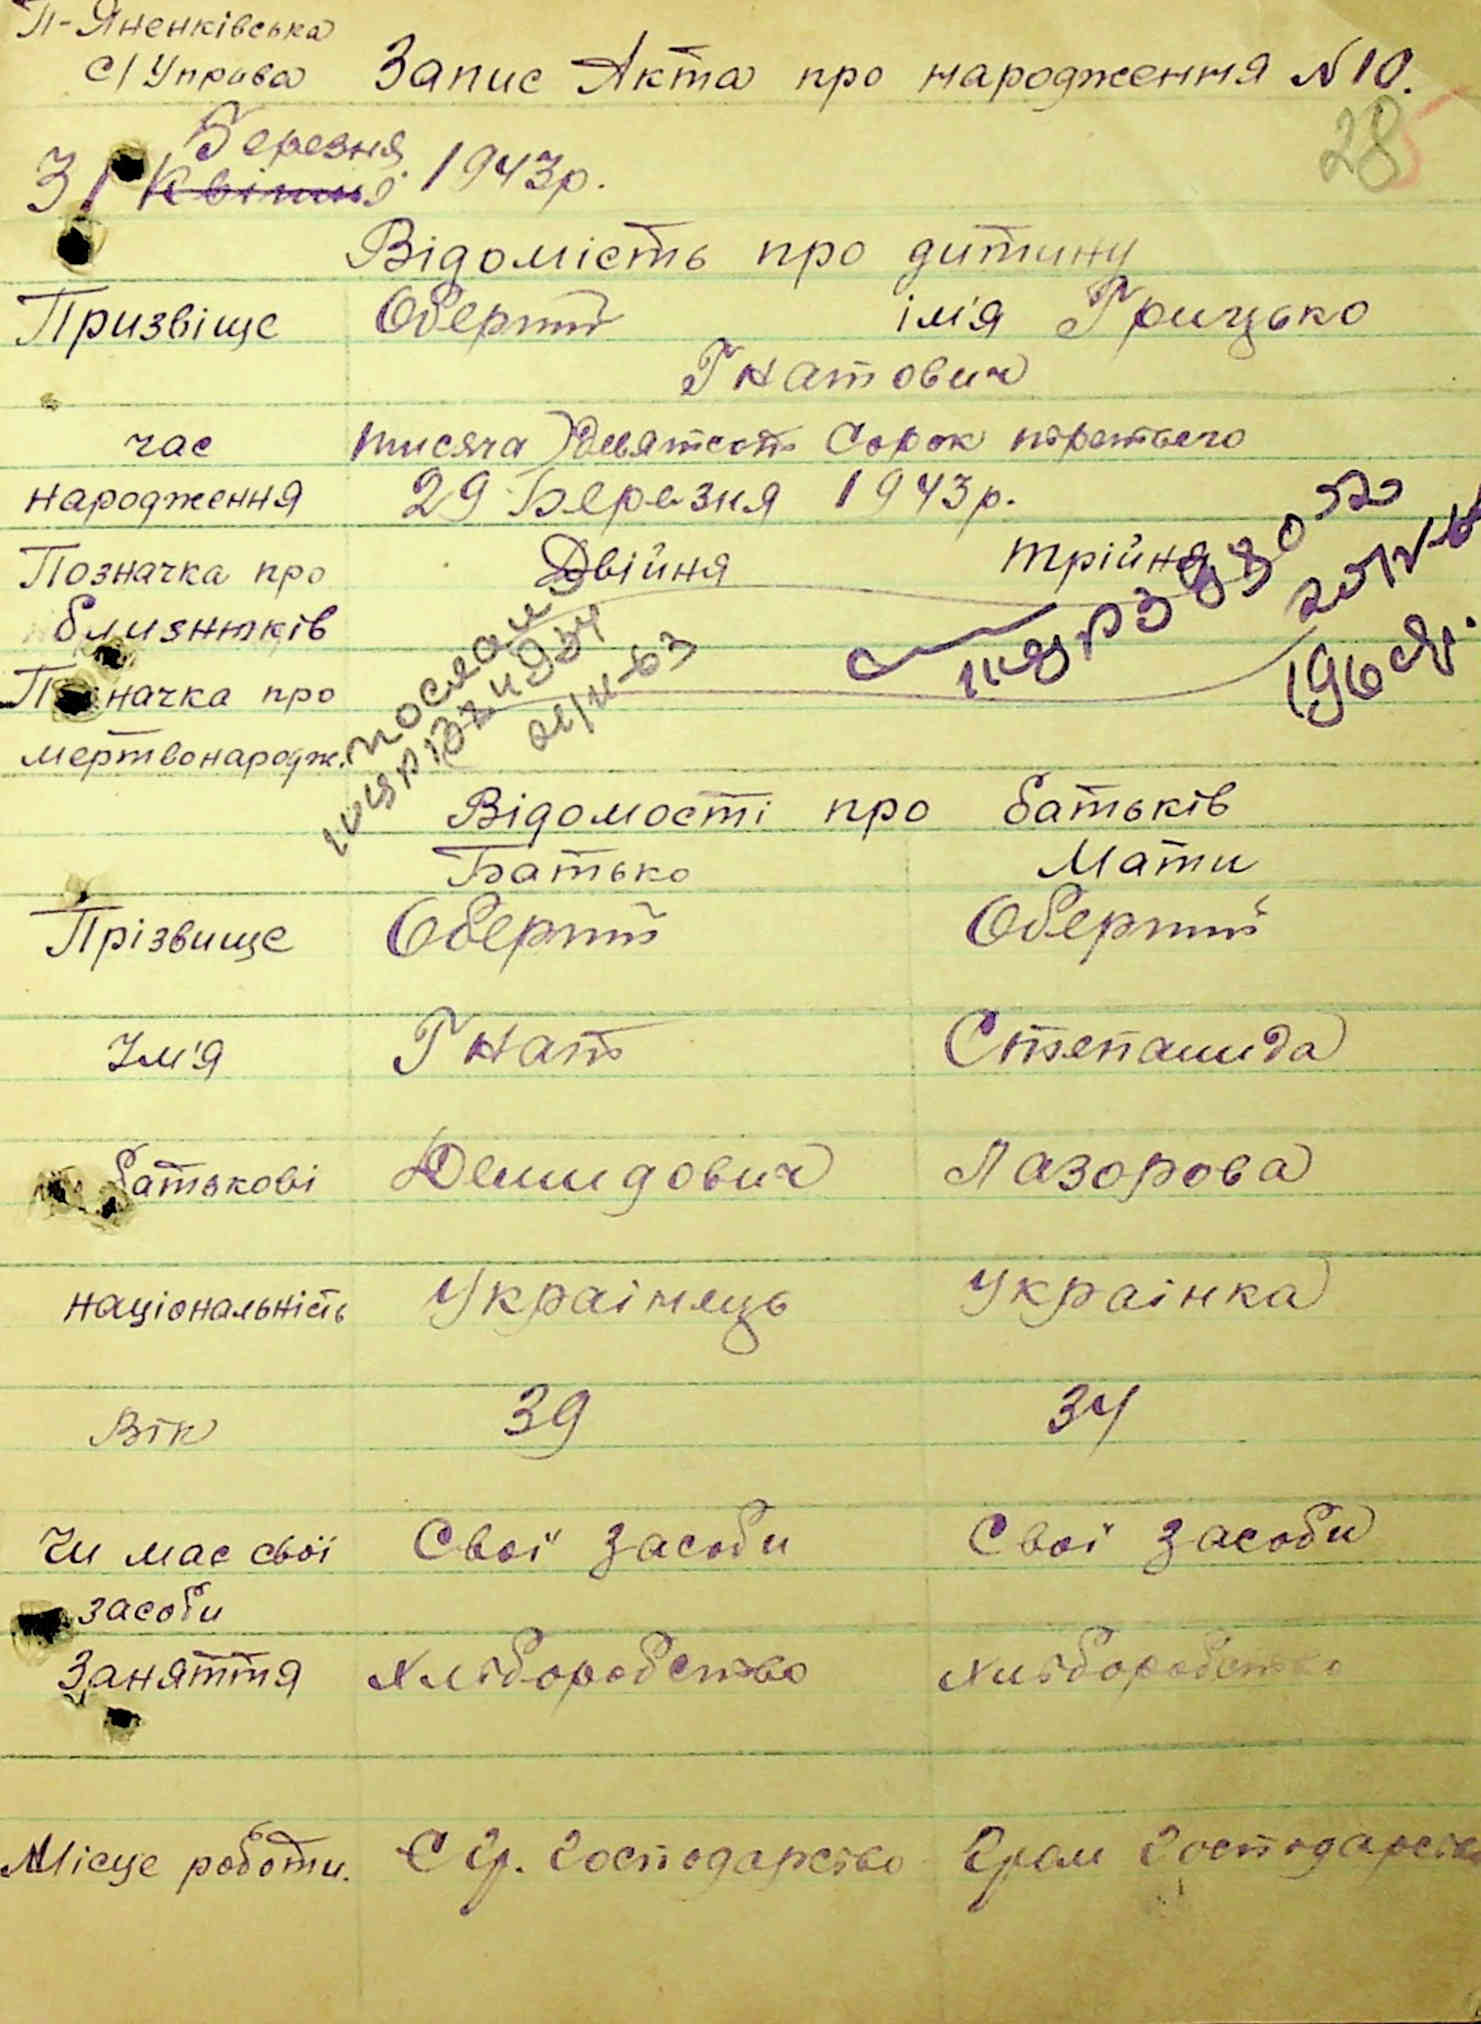 П-Яненківська
с/Управа Запис Акта про народження №10.
28
Березня
31 Квітня 1943р.
Відомість про дитину
Призвіще Оберт ім'я Грицько
Гнатович
час тисяча Девятсот Сорок третього
народження 29 Березня 1943р.
Позначка про Двійня трійня
близнтків
Позначка про
мертвонародж.
послан
Відомості про батьків
Батько Мати
Прізвище
Ім'я Гнат Степанида
батькові Демидович Лазорова
національність Українець Українка
Вік 39 34
Чи має свої Свої засоби Свої засоби
засоби
Заняття Хліборобство Хліборобство
Місце роботи. господарство Гром господарство